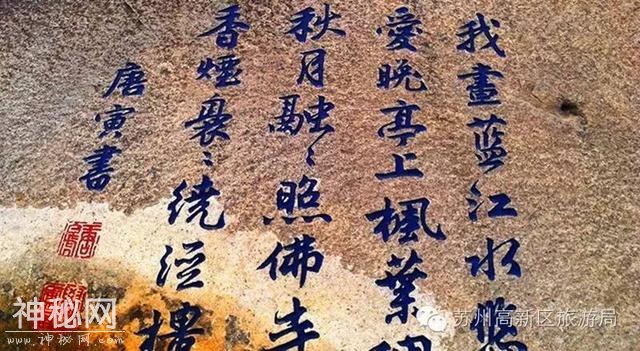 我畫蓝江水
愛晚亭上楓葉
秋月融〻照佛寺
香煙裊〻绕經樓
唐寅書
神秘网
www.神秘网.com
苏州高新区旅游局